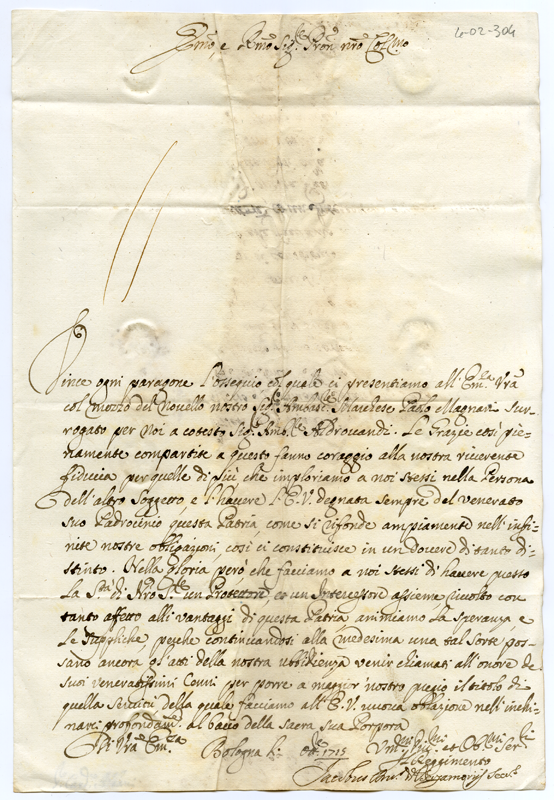 6-02-304
Em̃o, e Rm̃o Sig.r Pron. nr̃o Col.mo
Vince ogni paragone l'ossequio col quale ci presentiamo all'Em.za Vr̃a
col mezzo del Novello nostro Sig.r Amb.re Marchese Paolo Magnani Sur-
rogato per Noi a cotesto Sig.r Amb.re Aldrovandi. Le Grazie così pie-
namente compartite a questo fanno coraggio alla nostra riverente
fiducia per quelle di più che imploriamo a noi stessi nella Persona
dell'altro Soggetto, e l'havere l'E.V. degnata sempre del venerato
suo Padrocinio questa Patria come si rifonde ampiamente nell'infi-
nite nostre obligazioni, così ci constituisce in un Dovere di tanto di-
stinto. Nella gloria però che facciamo a noi stessi di havere presso
la S.tà di Nr̃o Sig.re un Protettore, et un Intercessore assieme rivolto con
tanto affetto alli vantaggi di questa Patria animiamo la speranza e
le suppliche, perche continuandosi alla medesima una tal sorte pos-
sano ancora gl'atti della nostra ubbidienza venir chiamati all'onore de
suoi veneratissimi Cenni per porre a maggior nostro pregio il titolo di
quella Servitù della quale facciamo all'E.V. nuova oblazione nell'inchi-
narci profondam.te al bacio della Sacra sua Porpora
Di Vr̃a Em.za Bologna li Ott.re 1715
Um.mi et Obl.mi Ser.ri
Il Reggimento
Jacobus Secr.s